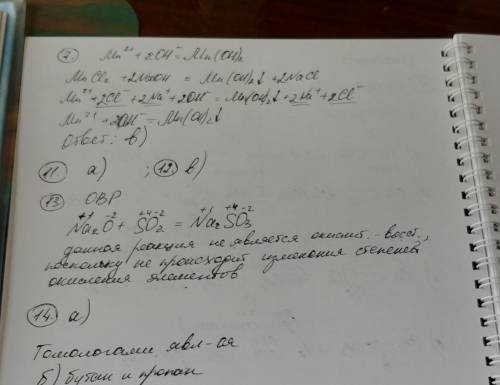 7. Mn²⁺ + 2OH⁻ = Mn(OH)₂
MnCl₂ + 2NaOH = Mn(OH)₂↓ + 2NaCl
Mn²⁺ + 2Cl⁻ + 2Na⁺ + 2OH⁻ = Mn(OH)₂↓ + 2Na⁺ + 2Cl⁻
Mn²⁺ + 2OH⁻ = Mn(OH)₂↓
Ответ: в)
11. а) ; 12. в)
13 ОВР
+1 -2 +4 -2 +1 +4 -2
Na₂O + SO₂ = Na₂SO₃
данная реакция не является окислит.-восст.,
поскольку не происходит изменения степеней
окисления элементов
14. а)
Гомологами явл-ая
б) бутан и пропан